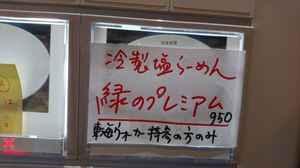 冷製塩らーめん
緑のプレミアム
950
東海ウォーカー持参の方のみ